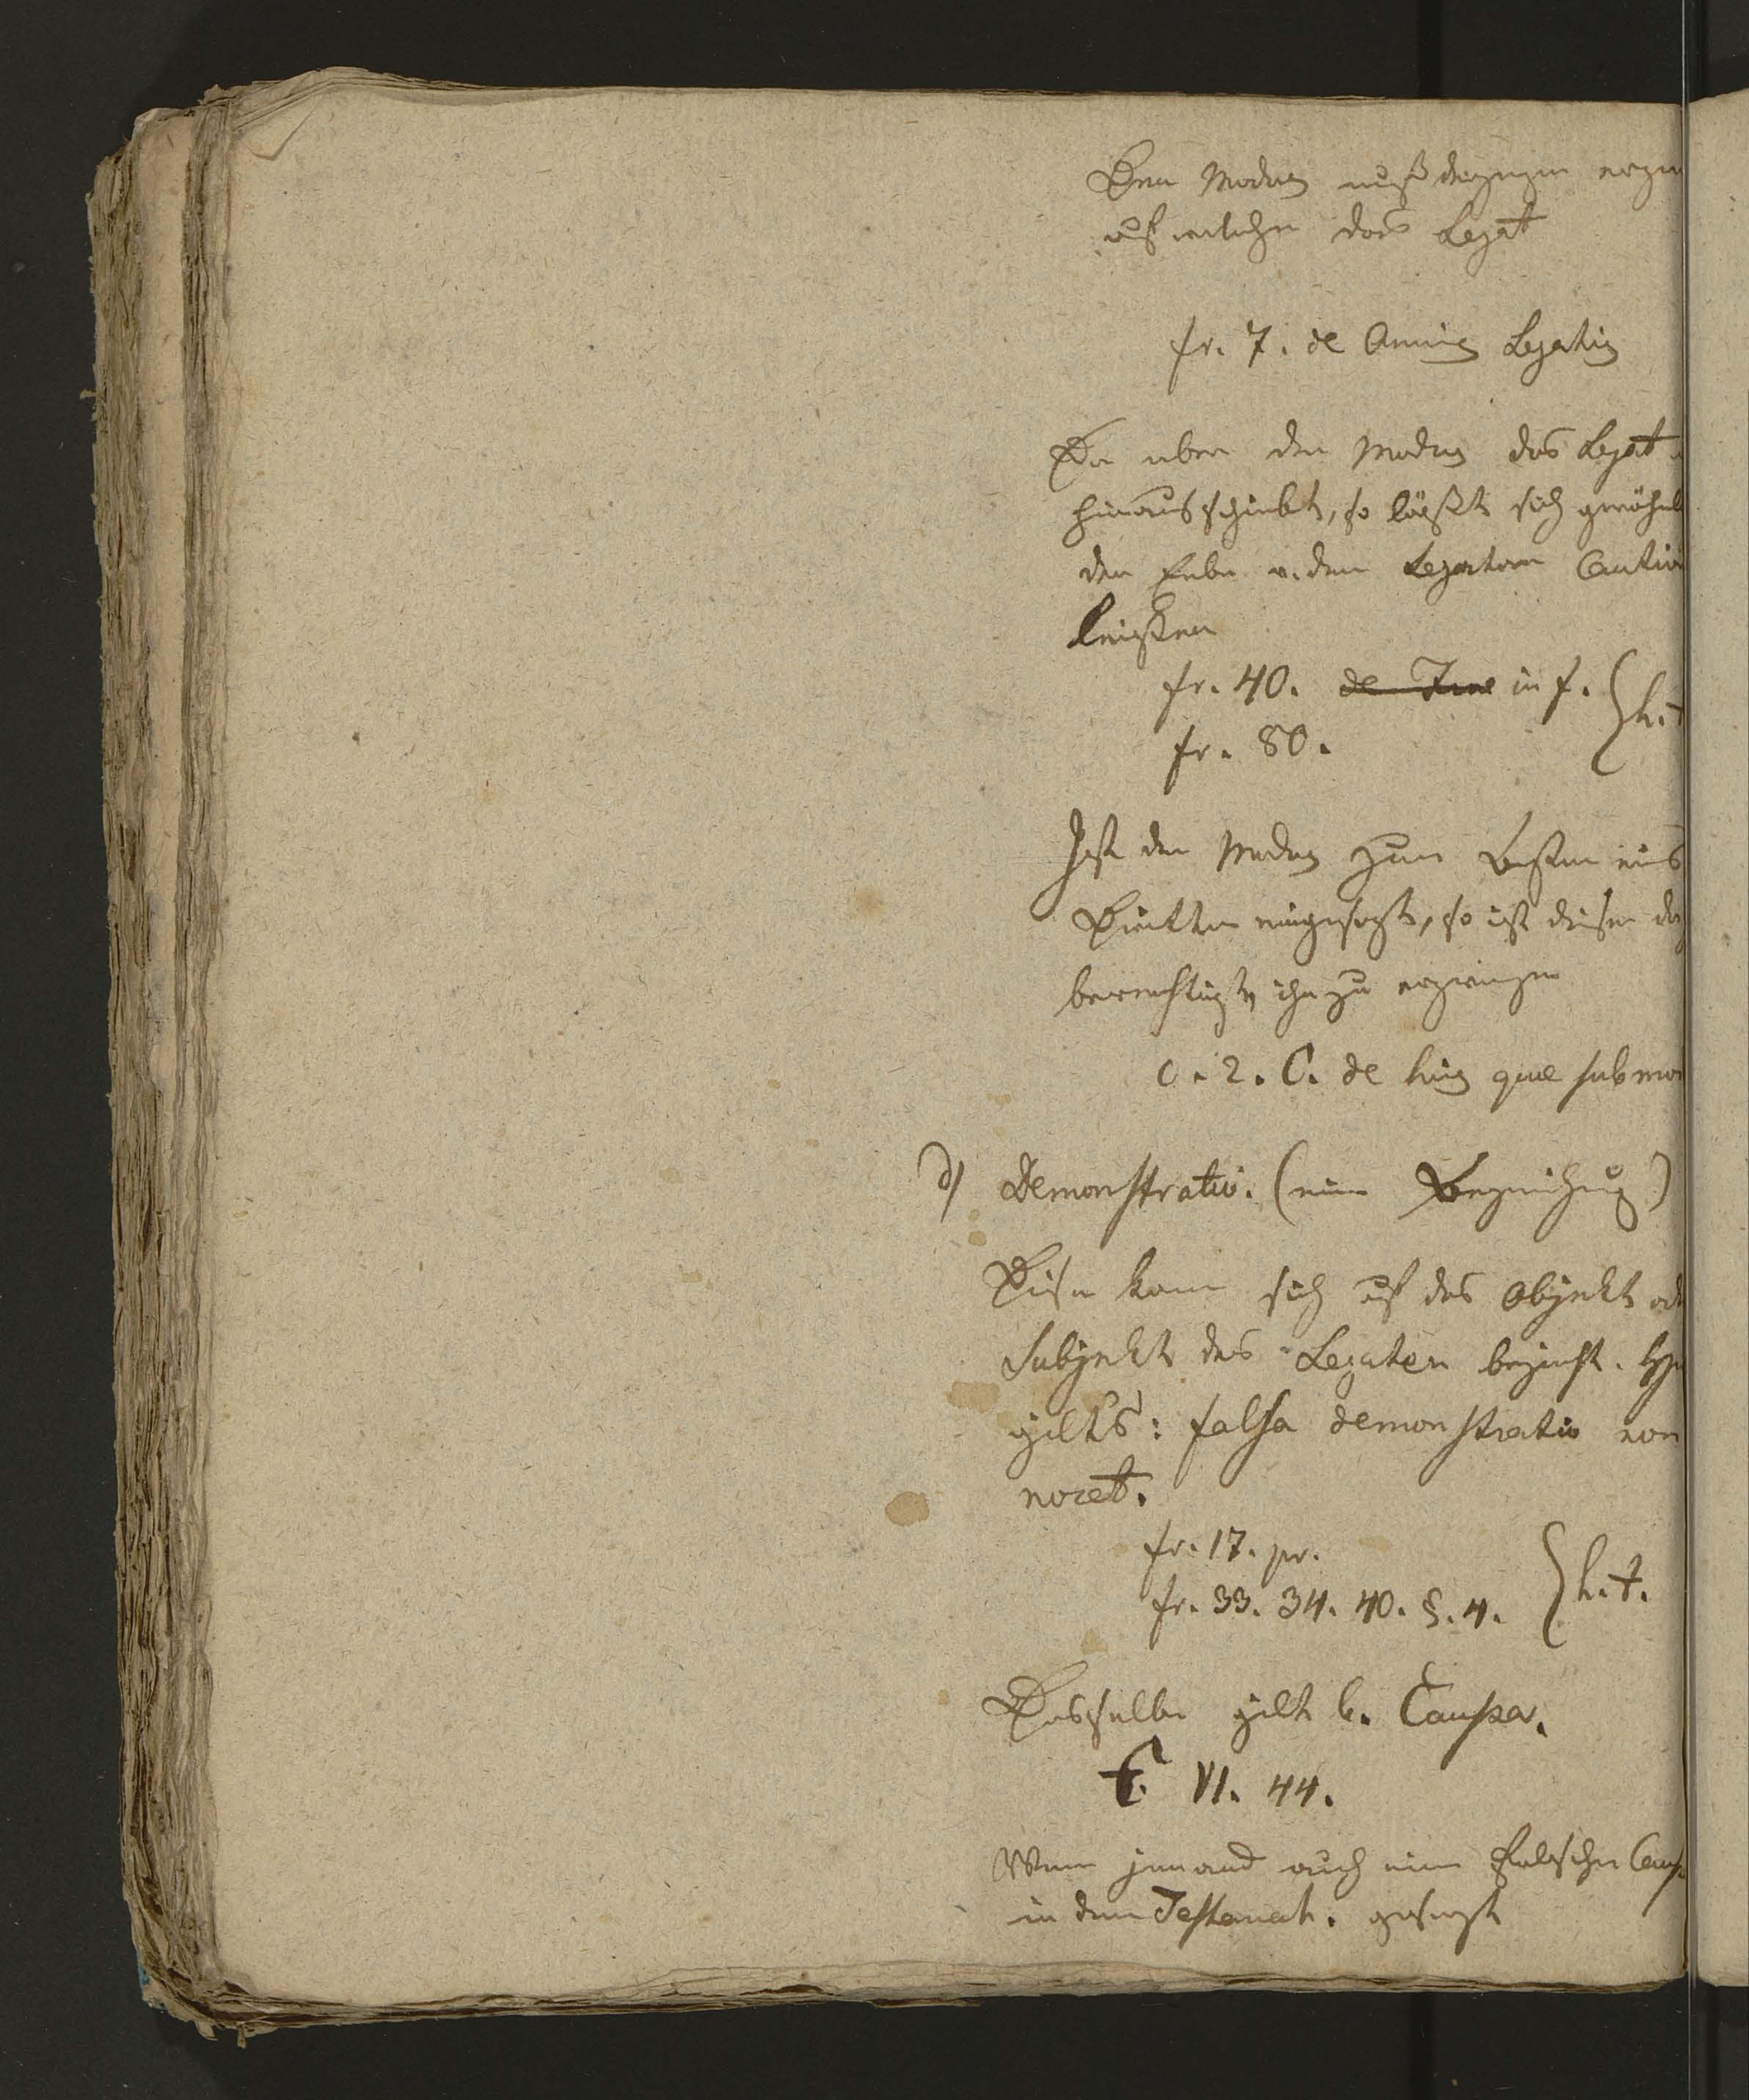 Den Modus muß derjenige
auf welchen das Legat
fr. 7. de Annuis Legatis
Da aber der Modus das Legat
hinausschiebt, so läßt sich gewöhnl
der Erbe v. dem Legatar Cautio
leisten
fr. 40. de Jure in f. } h. t
fr. 80.
Ist der Modus zum Besten eines
Dritten eingesetzt, so ist dieser
berechtigt, ihn zu erzwingen
c. 2. C. de his quae sub mo
d) Demonstratio. (eine Bezeichnung)
Diese kann sich auf das Objekt od
Subjekt des Legaten bezieht.
gilts: falsa demonstratio non
nocet.
fr. 17. pr.
fr. 33. 34. 40. §. 4. } h. t.
Dasselbe gilt b. Causa.
C. VI. 44.
Wenn jemand auch eine falsche Caus
in dem Testament. gesetzt